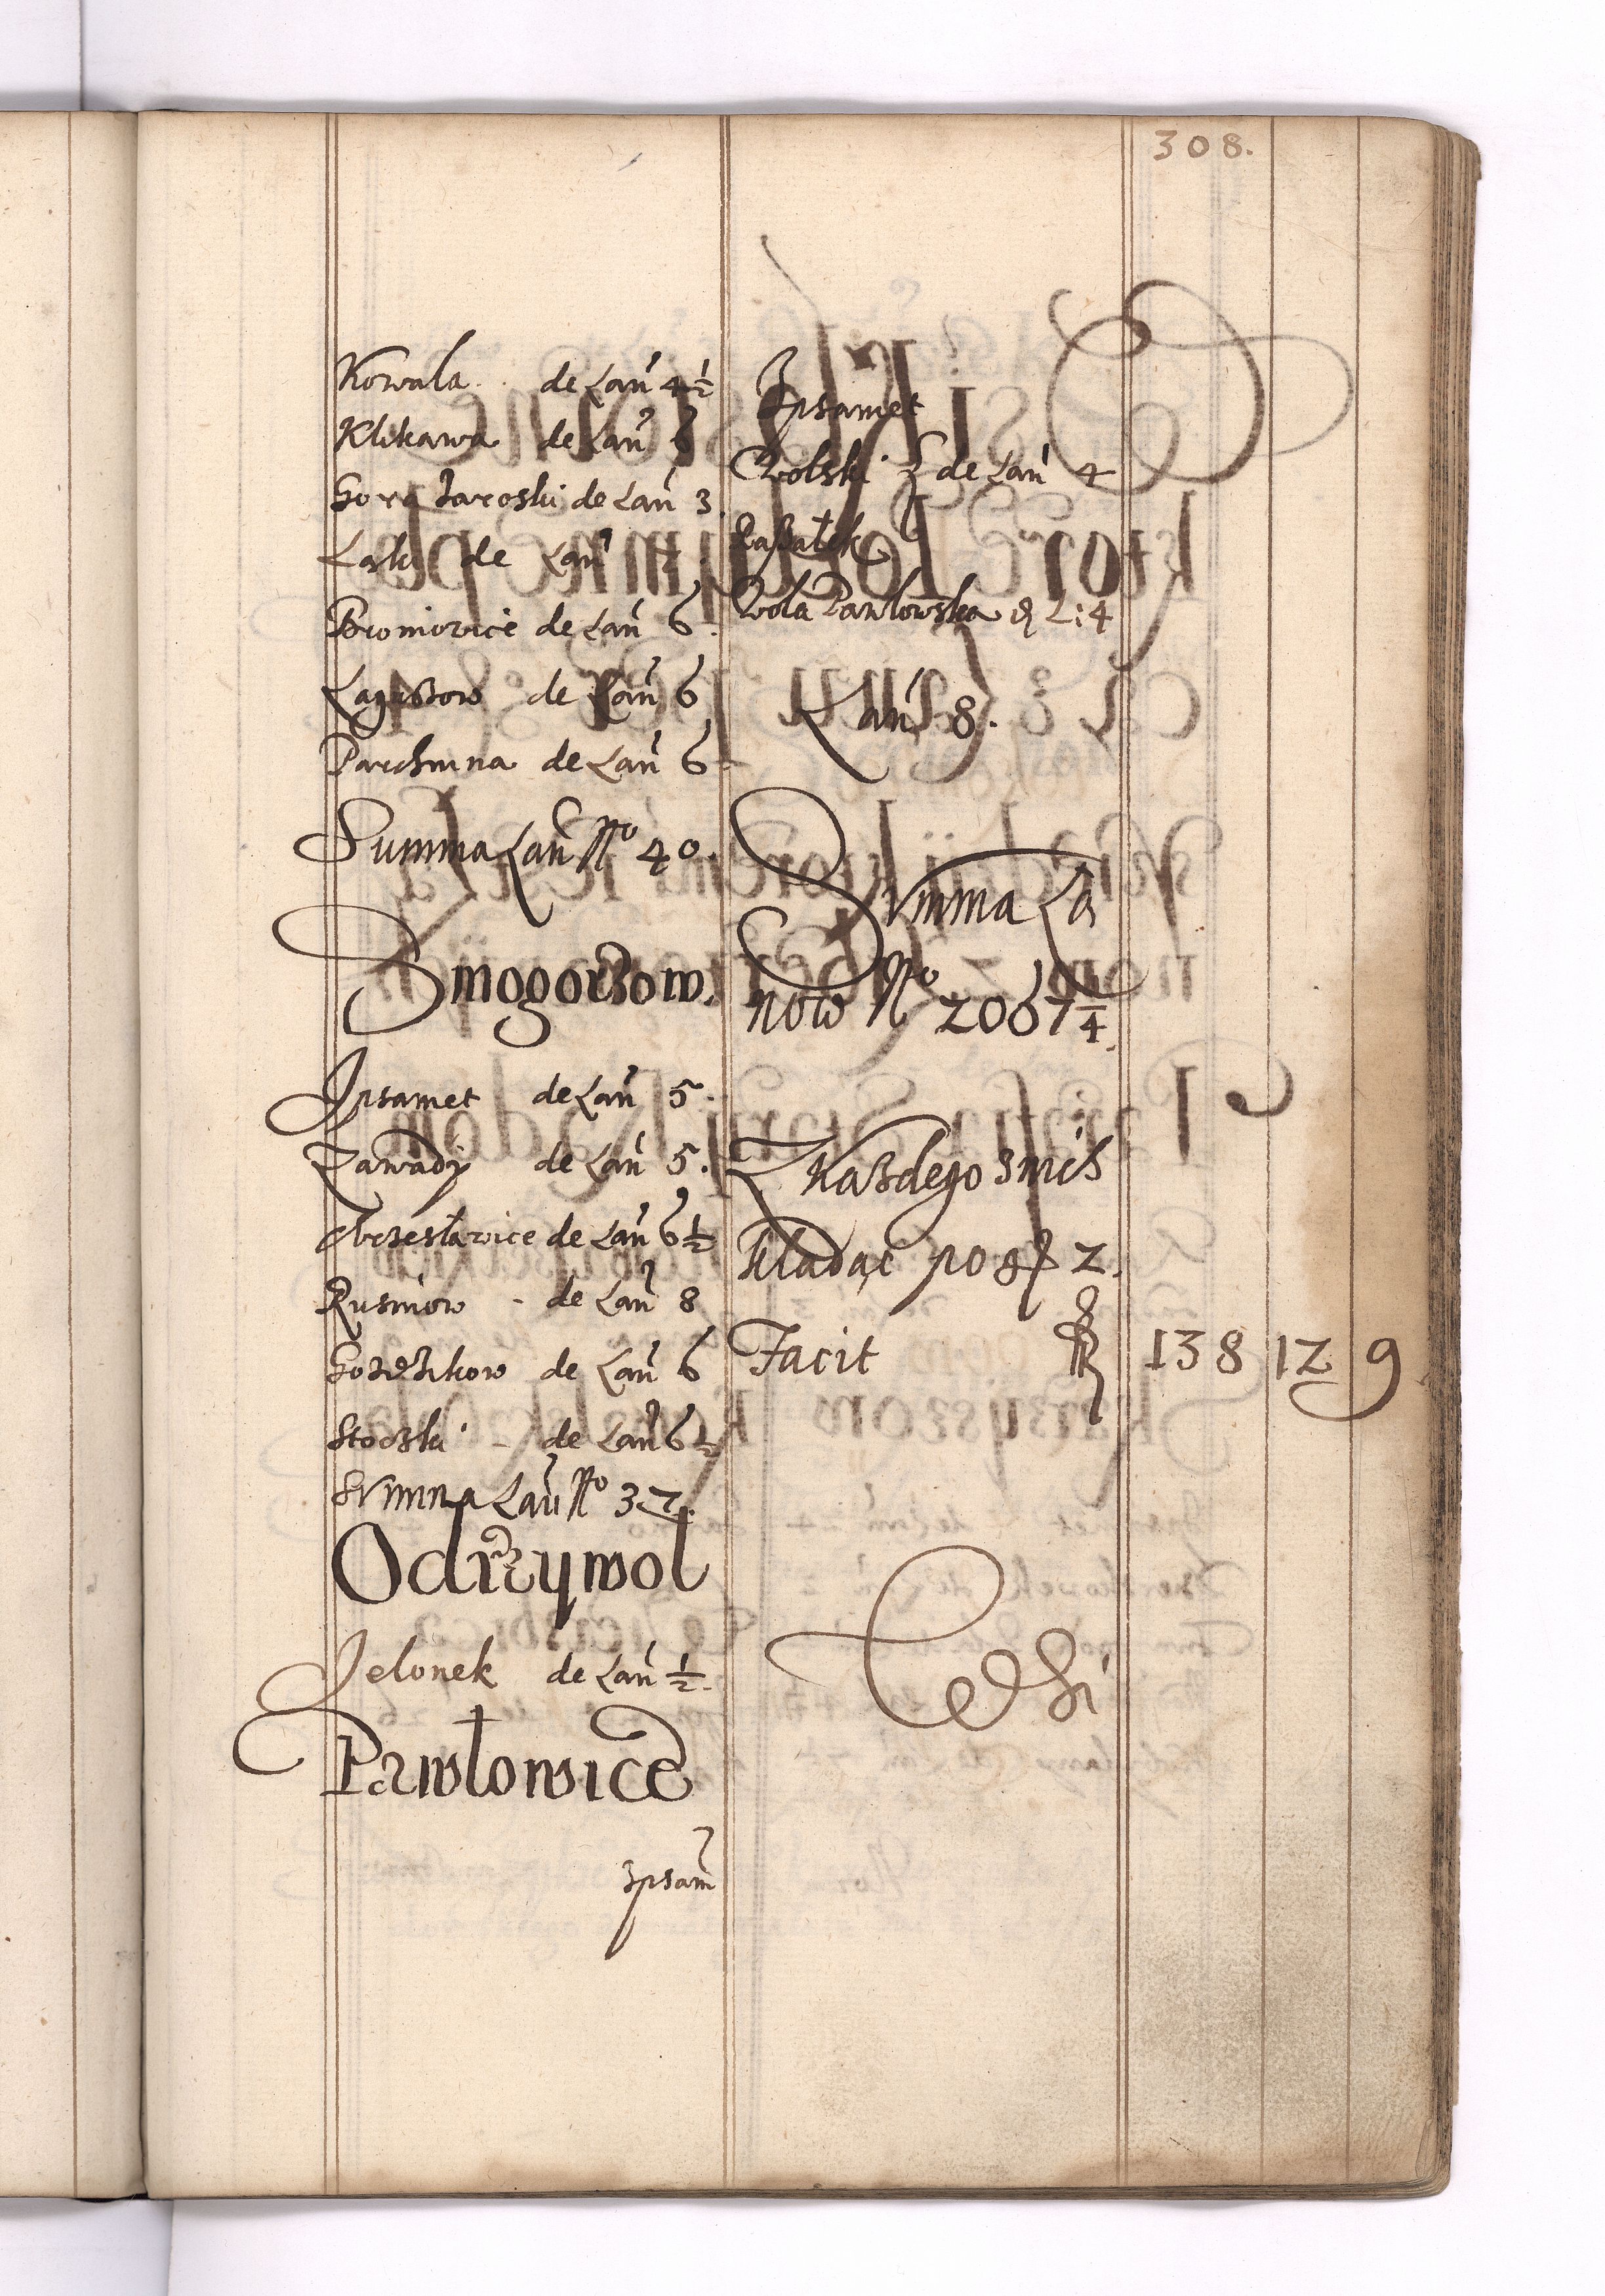 308.
Kowala. de Lan 4 1/2
Klikawa de Lan 6
Gora Jaroski de Lan 3.
de Lan
Broniowice de Lan 6.
Lagussow de Lan 6
Parchnina de Lan 6
Summa Lan No 40.
Smogorzow.
Ipsamet de Lan 5.
Zawady de Lan 5.
de Lan 6 1/2
Rusinow - de Lan 8
de Lan 6
Stoczki - de Lan 6 1/2
Summa Lan No 37.
Odrzywol
Jelonek de Lan 1/2.
Pawłowice
Ipsam
Ipsamet
Wolski de Lan 4
Wola Pawlowska L: 4
Lan 8.
Summa La
now No 2067 1/4
Z Kazdego znich
kladąc po gr 2.
Facit 138 12 9